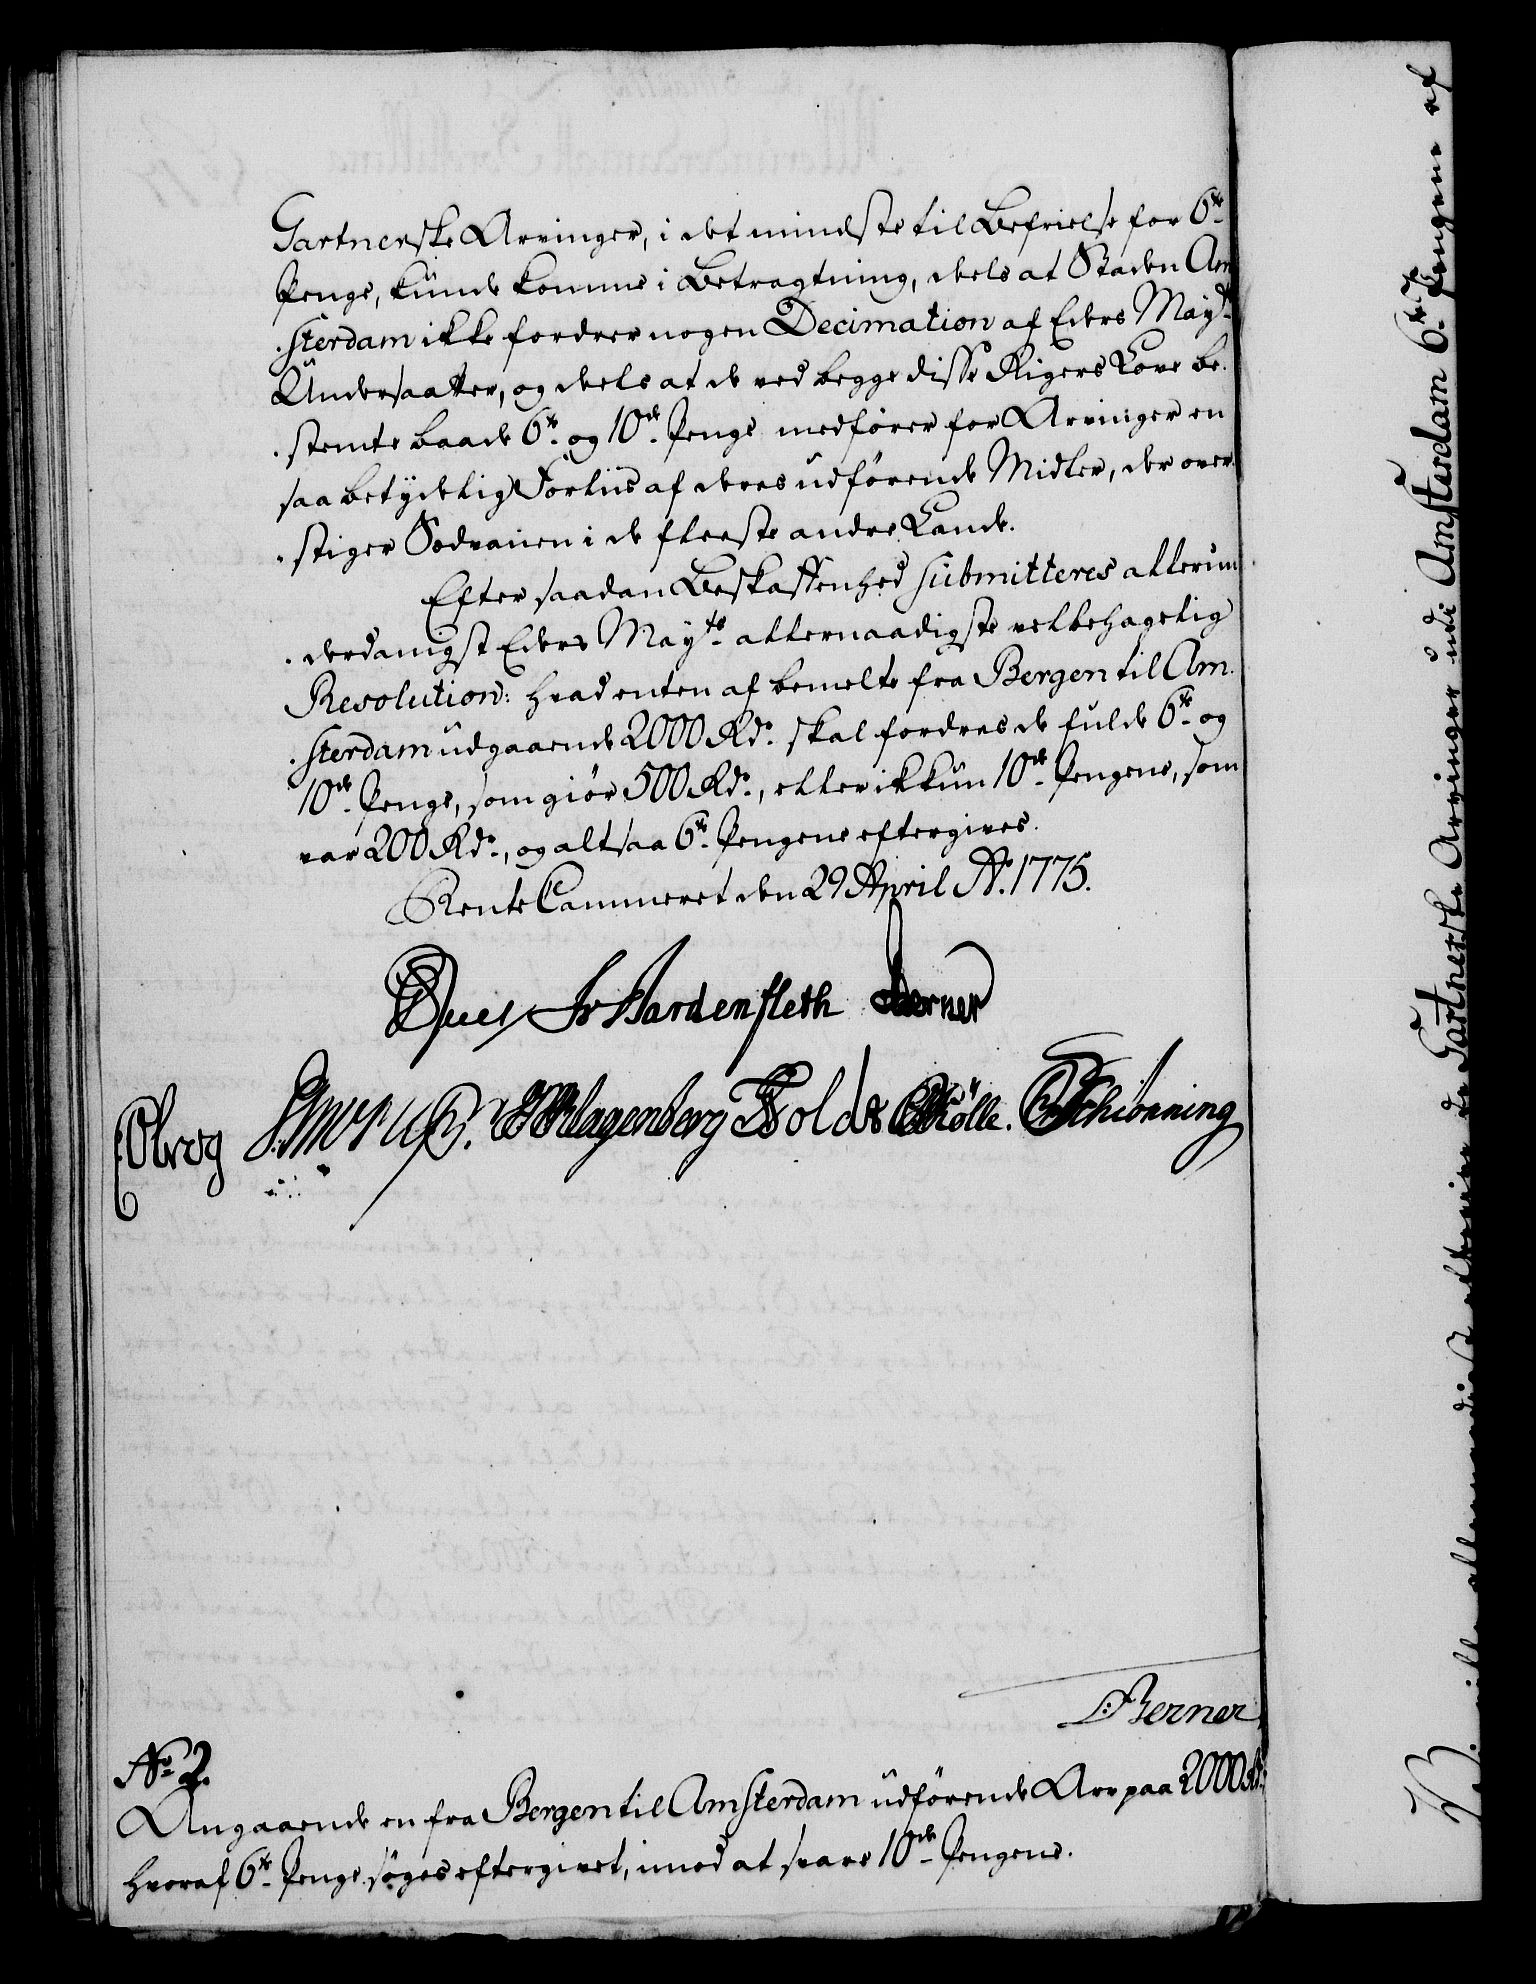 Gartnerske Arvinger, i det mindste til Befrielse for 6te
Penge, kunde komme i Betragtning, deels at Staden Am
sterdam ikke fordrer nogen Decimation af Eders Mayts
Undersaatter, og deels at de ved begge disse Rigers Love be-
stemte baade 6te og 10de Penge medfører for Arvinger en
saa betydelig Forliis af deres udførende Midler, der over-
stiger Sedvanen i de fleeste andre Lande.
Efter saadan Beskaffenhed submitteres allerun
derdanigst Eders Mayts allernaadigste velbehagelig
Resolution: hvad enten af bemelte fra Bergen til Am-
sterdam udgaaende 2000 Rdr. skal fordres de fulde 6te og
10de Penge, som giør 500 Rdr., eller ikkun 10de Pengene, som
var 200 Rdr., og altsaa 6te Pengene eftergives.
Rente Cammeret den 29 April Ao. 1775.
Juel Hardenfleth Berner
Olrog Klagenberg Holde Kølle. Schiønning
Berner
No. 2.
Angaaende en fra Bergen til Amsterdam udførende Arv paa 2000 Rdr.
hvoraf 6te Penge søges eftergivet, imod at svare 10de Pengene.
Vi ville allernaadigst Gartnerske Arvinger udi Amsterdam 6te Pengene af